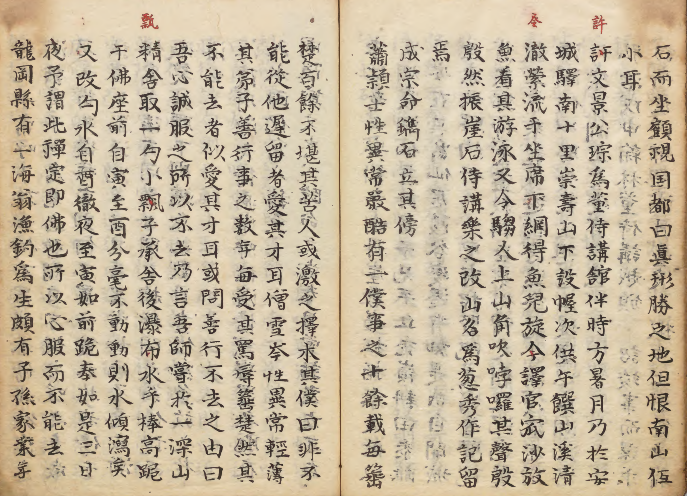 石而坐顧視国都曰眞形勝之地但恨南山伍
小耳
許文景公琮為瑩侍講館伴時方暑月乃於安
城驛南十里崇壽山下設幄次供午饌山溪清
澈縈流于坐席下網得魚兒旋令譯官宬沙放
魚看其游泳又令騶人上山角吹哱囉其聲殷
殷然振崖石侍講樂之改山名為葱秀作記留
焉
成宗命鐫石立其傍
蕭穎士性異常嚴酷有一僕事之十餘載每箠
楚百餘不堪其苦人或激之擇木其僕曰非不
能從他遲留者愛其才耳僧雪岑性異常輕薄
其弟子善行事之数年每受其罵辱箠楚然其
不能去者似愛其才耳或問善行不去之由曰
吾心誠服之所以不去乃言吾師嘗於一深山
精舍取一勺小瓢子承舍後瀑布水手棒高跪
于佛座前自寅至酉分毫不動動則水傾瀉矣
又改勺水自酉徹夜至寅如前跪奉如是三日
夜予謂此禪定即佛也所以心服而不能去
龍岡縣有一海翁漁釣為生頗有子孫家業年
許
瑩
瓢